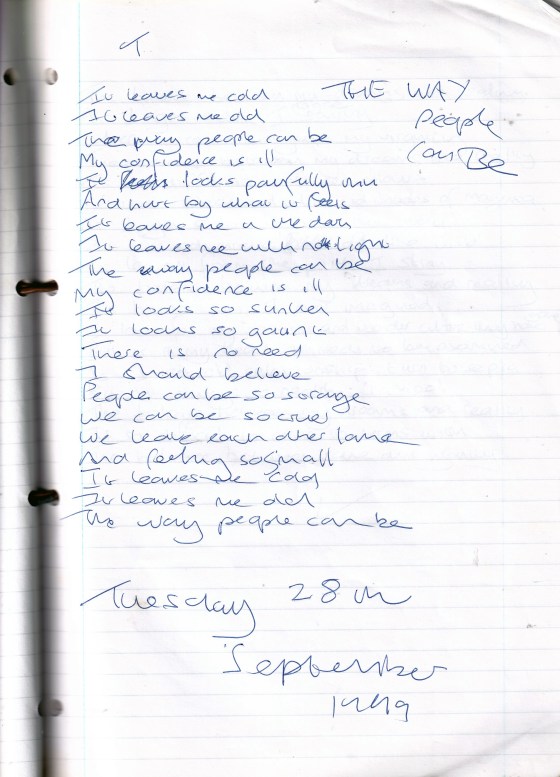 T
THE WAY
People
Can Be
It leaves me cold
It leaves me old
The way people can be
My confidence is ill
It looks painfully thin
And hurt by what it feels
It leaves me in the dark
It leaves me with no light
The way people can be
My confidence is ill
It looks so sunken
It looks so gaunt
There is no need
I should believe
People can be so strange
We can be so cruel
We leave each other lame
And feeling so small
It leaves me cold
It leaves me old
The way people can be
Tuesday 28th
September
1999